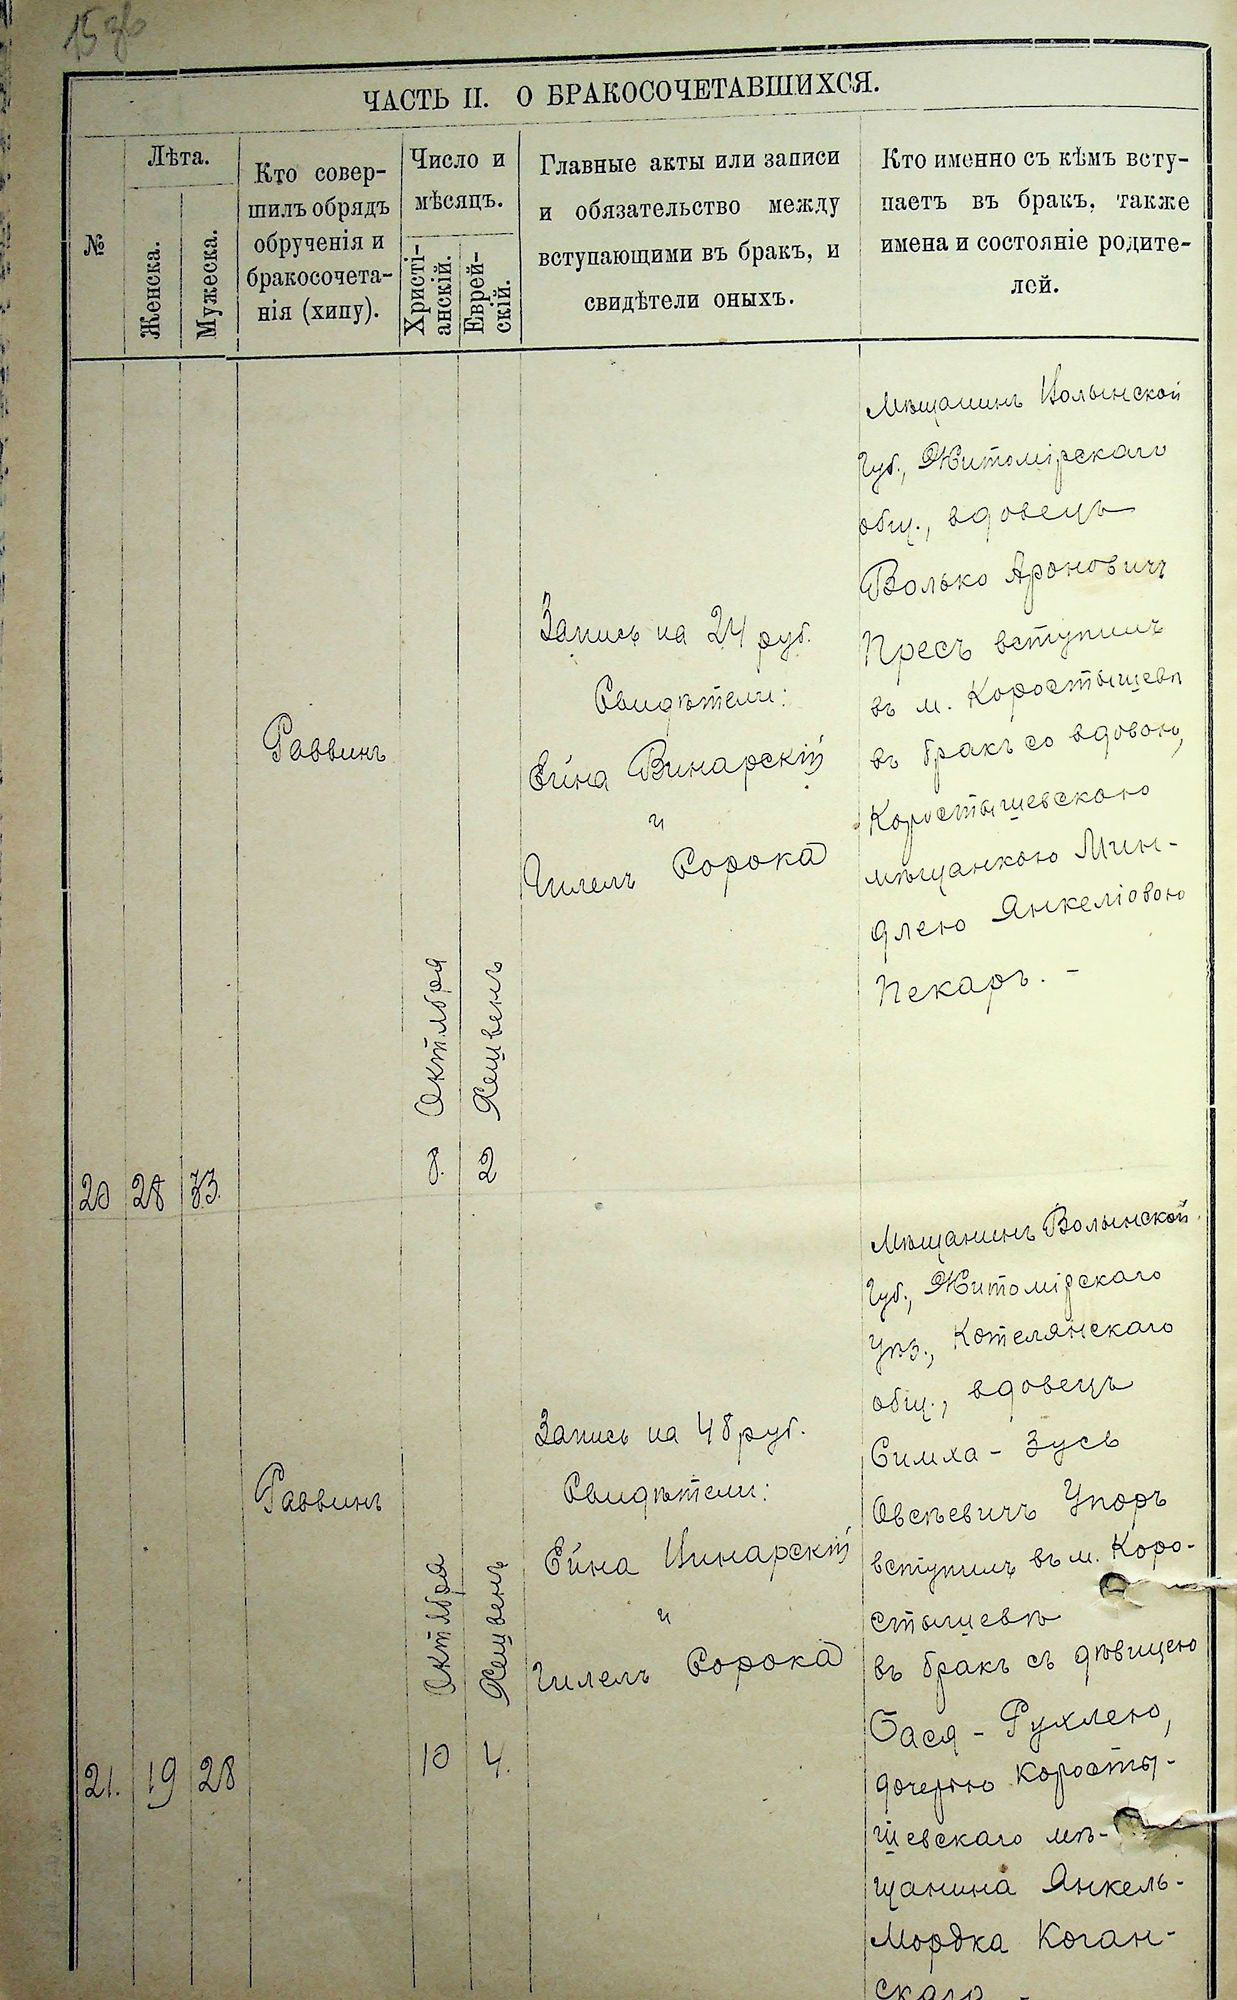 15 об
ЧАСТЬ II. О БРАКОСОЧЕТАВШИХСЯ.
№
Лѣта.
Женска.
Мужеска.
Кто совер-
шилъ обрядъ
обрученія и
бракосочета-
нія (хипу).
Число и
мѣсяцъ.
Христі-
анскій.
Еврей-
скій.
Главные акты или записи
и обязательство между
вступающими въ бракъ, и
свидѣтели оныхъ.
Кто именно съ кѣмъ всту-
паетъ въ бракъ, также
имена и состояніе родите-
лей.
20
28
33.
Раввинъ
8. Октября
2 Хешвенъ
Запись на 24 руб.
Свидѣтели:
Ейна Винарскій
и
Гилель Сорока
Мѣщанинъ Волынской
Губ., Житомірскаго
общ., вдовецъ
Волько Ароновичъ
Пресъ вступилъ
въ м. Коростышевѣ
въ бракъ со вдовою,
Коростышевскою
мѣщанкою Мин-
длею Янкеліовою
Пекаръ. -
21.
19
28
Раввинъ
10 Октября
4. Хешвенъ
Запись на 48 руб.
Свидѣтели:
Ейна Винарскій
и
Гилель Сорока
Мѣщанинъ Волынской
Губ., Житомірскаго
Уѣз., Котелянскаго
общ., вдовецъ
Симха - Зусь
Овсѣевичъ Упоръ
вступилъ въ м. Коро-
стышевѣ
въ бракъ съ дѣвицею
Бася - Рухлею,
дочерью Коросты-
шевскаго мѣ-
щанина Янкель-
Мордка Коган-
скаго -